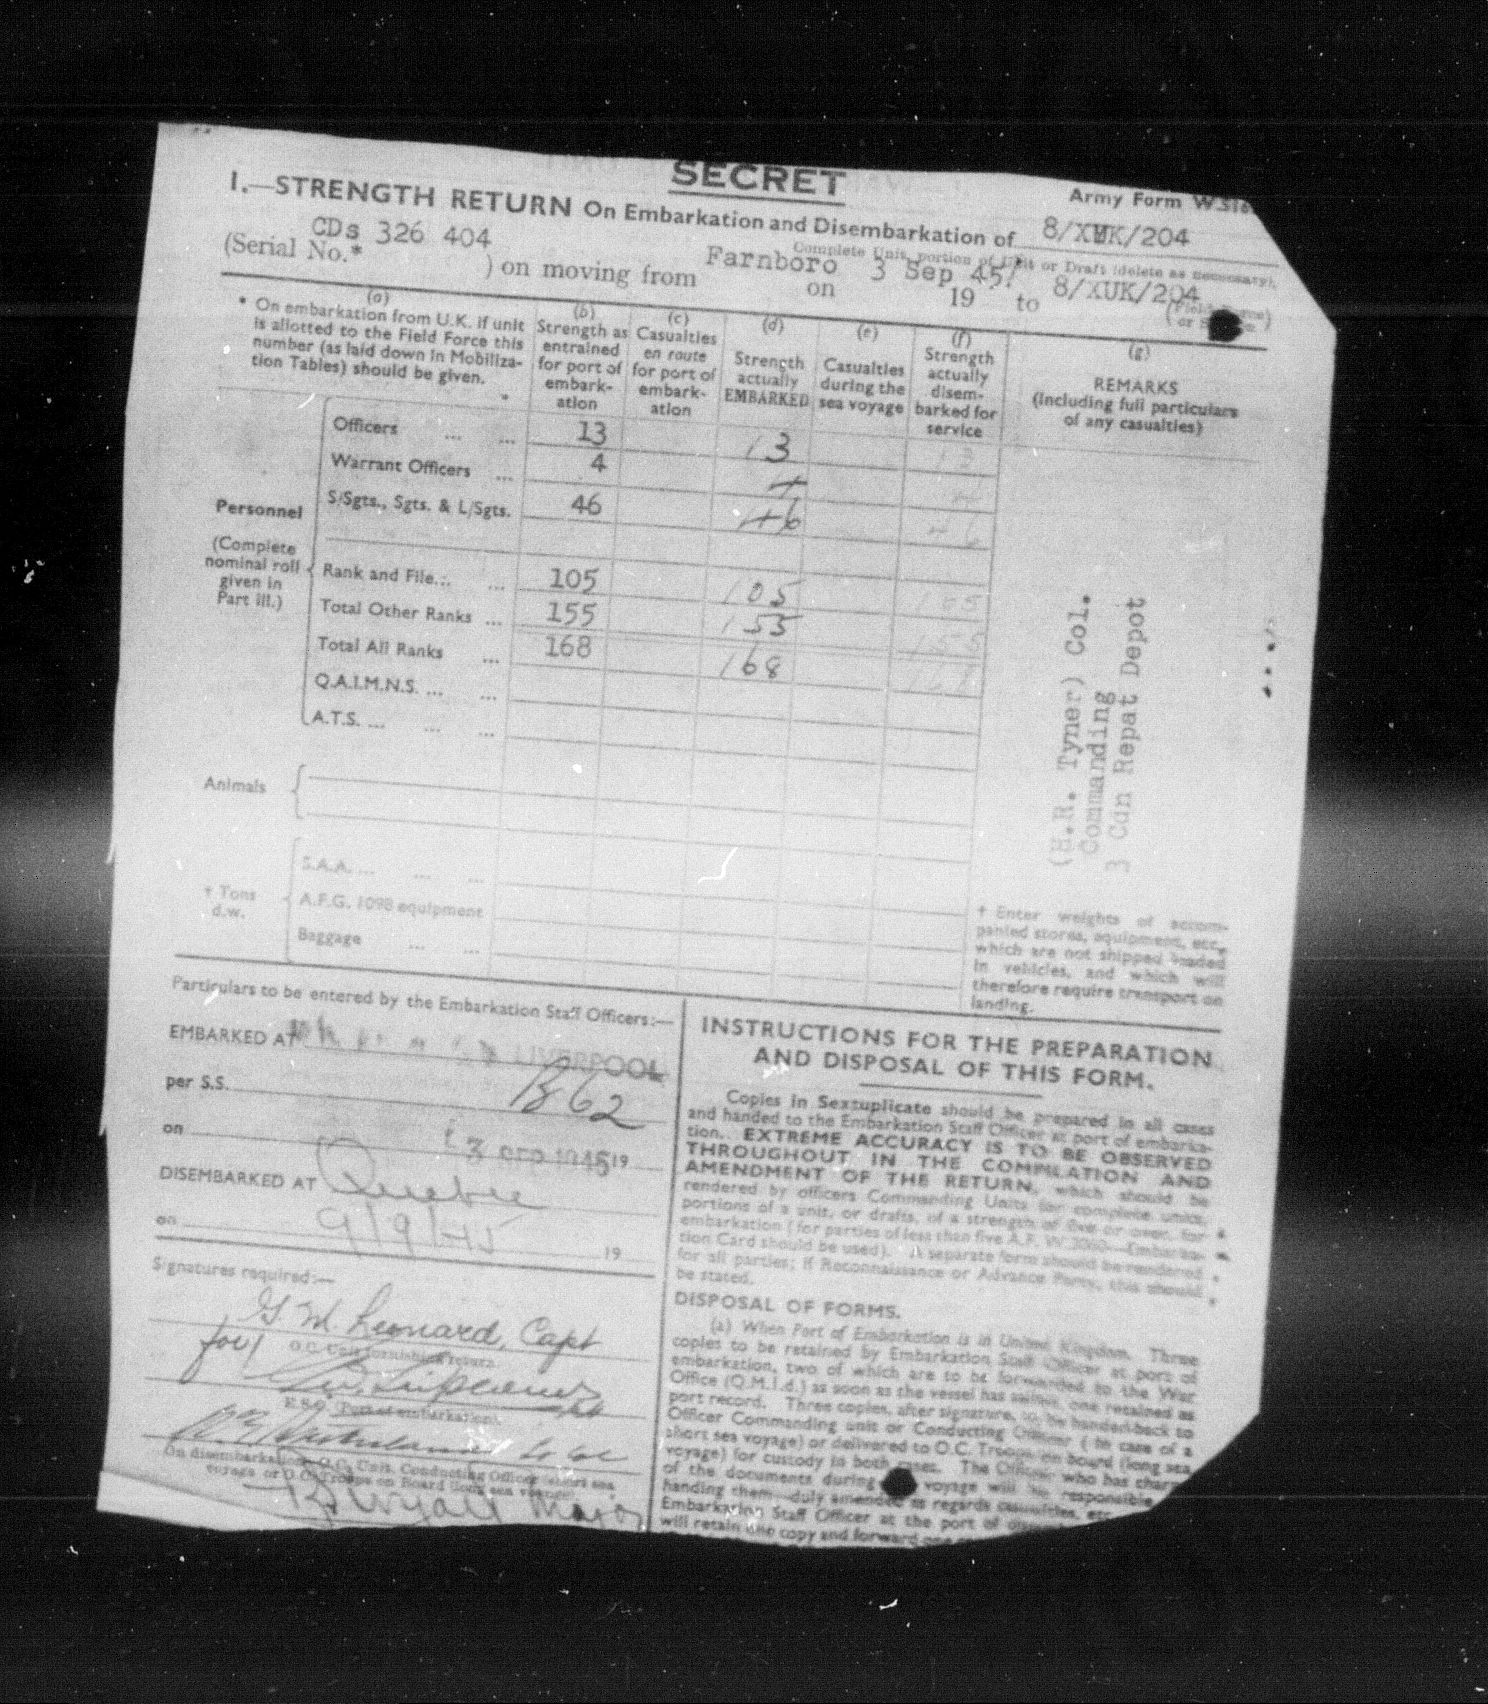 SECRET
Army Form W
I.—STRENGTH RETURN On Embarkation and Disembarkation of 8/XUK/204
Complete Unit, portion of Unit or Draft (delete as necessary).
CDs 326 404
(Serial No.* ) on moving from Farnboro on 3 Sep 45/ 19 to 8/XUK/204
(a)
* On embarkation from U.K. if unit
is allotted to the Field Force this
number (as laid down in Mobiliza-
tion Tables) should be given.
(b)
Strength as
entrained
for port of
embark-
ation
(c)
Casualties
en route
for port of
embark-
ation
(d)
Strength
actually
EMBARKED
(e)
Casualties
during the
sea voyage
(f)
Strength
actually
disem-
barked for
service
(g)
REMARKS
(Including full particulars
of any casualties)
Personnel
(Complete
nominal roll
given in
Part III.)
Officers ... ... 13 13 13
Warrant Officers ... 4 4 4
S/Sgts., Sgts. & L/Sgts. 46 46 46
Rank and File... ... 105 105 105
Total Other Ranks ... 155 155 155
Total All Ranks ... 168 168 168
Q.A.I.M.N.S. ... ...
A.T.S. ... ... ...
(H.R. Tyner) Col.
Commanding
3 Cdn Repat Depot
Animals
† Tons
d.w.
S.A.A. ... ... ...
A.F.G. 1098 equipment
Baggage ... ...
† Enter weights of accom-
panied stores, equipment, etc.,
which are not shipped loaded
in vehicles, and which will
therefore require transport on
landing.
Particulars to be entered by the Embarkation Staff Officers:—
EMBARKED AT LIVERPOOL
per S.S. B62
on 3 SEP 1945 19
DISEMBARKED AT Quebec
on 9/9/45 19
Signatures required:—
G. M. Leonard, Capt
for/ O.C. Unit furnishing return.
E.S.O. (Port of embarkation).
On disembarkation, O.C. Unit, Conducting Officer (short sea
voyage or O.C. Troops on Board (long sea voyage).
Major
INSTRUCTIONS FOR THE PREPARATION
AND DISPOSAL OF THIS FORM.
Copies in Sextuplicate should be prepared in all cases
and handed to the Embarkation Staff Officer at port of embarka-
tion. EXTREME ACCURACY IS TO BE OBSERVED
THROUGHOUT IN THE COMPILATION AND
AMENDMENT OF THE RETURN, which should be
rendered by officers Commanding Units for complete units,
portions of a unit, or drafts, of a strength of five or over, for
embarkation (for parties of less than five A.F. W. Embarka-
tion Card should be used). A separate form should be rendered
for all parties; if Reconnaissance or Advance Party, this should
be stated.
DISPOSAL OF FORMS.
(a) When Port of Embarkation is in United Kingdom. Three
copies to be retained by Embarkation Staff Officer at port of
embarkation, two of which are to be forwarded to the War
Office (Q.M.I.d.) as soon as the vessel has sailed, one retained as
port record. Three copies, after signature, to be handed back to
Officer Commanding unit or Conducting Officer (in case of a
short sea voyage) or delivered to O.C. Troops on board (long sea
voyage) for custody in both cases. The Officer who has charge
of the documents during the voyage will be responsible
handing them—duly amended as regards casualties, etc.
Embarkation Staff Officer at the port of
will retain one copy and forward one